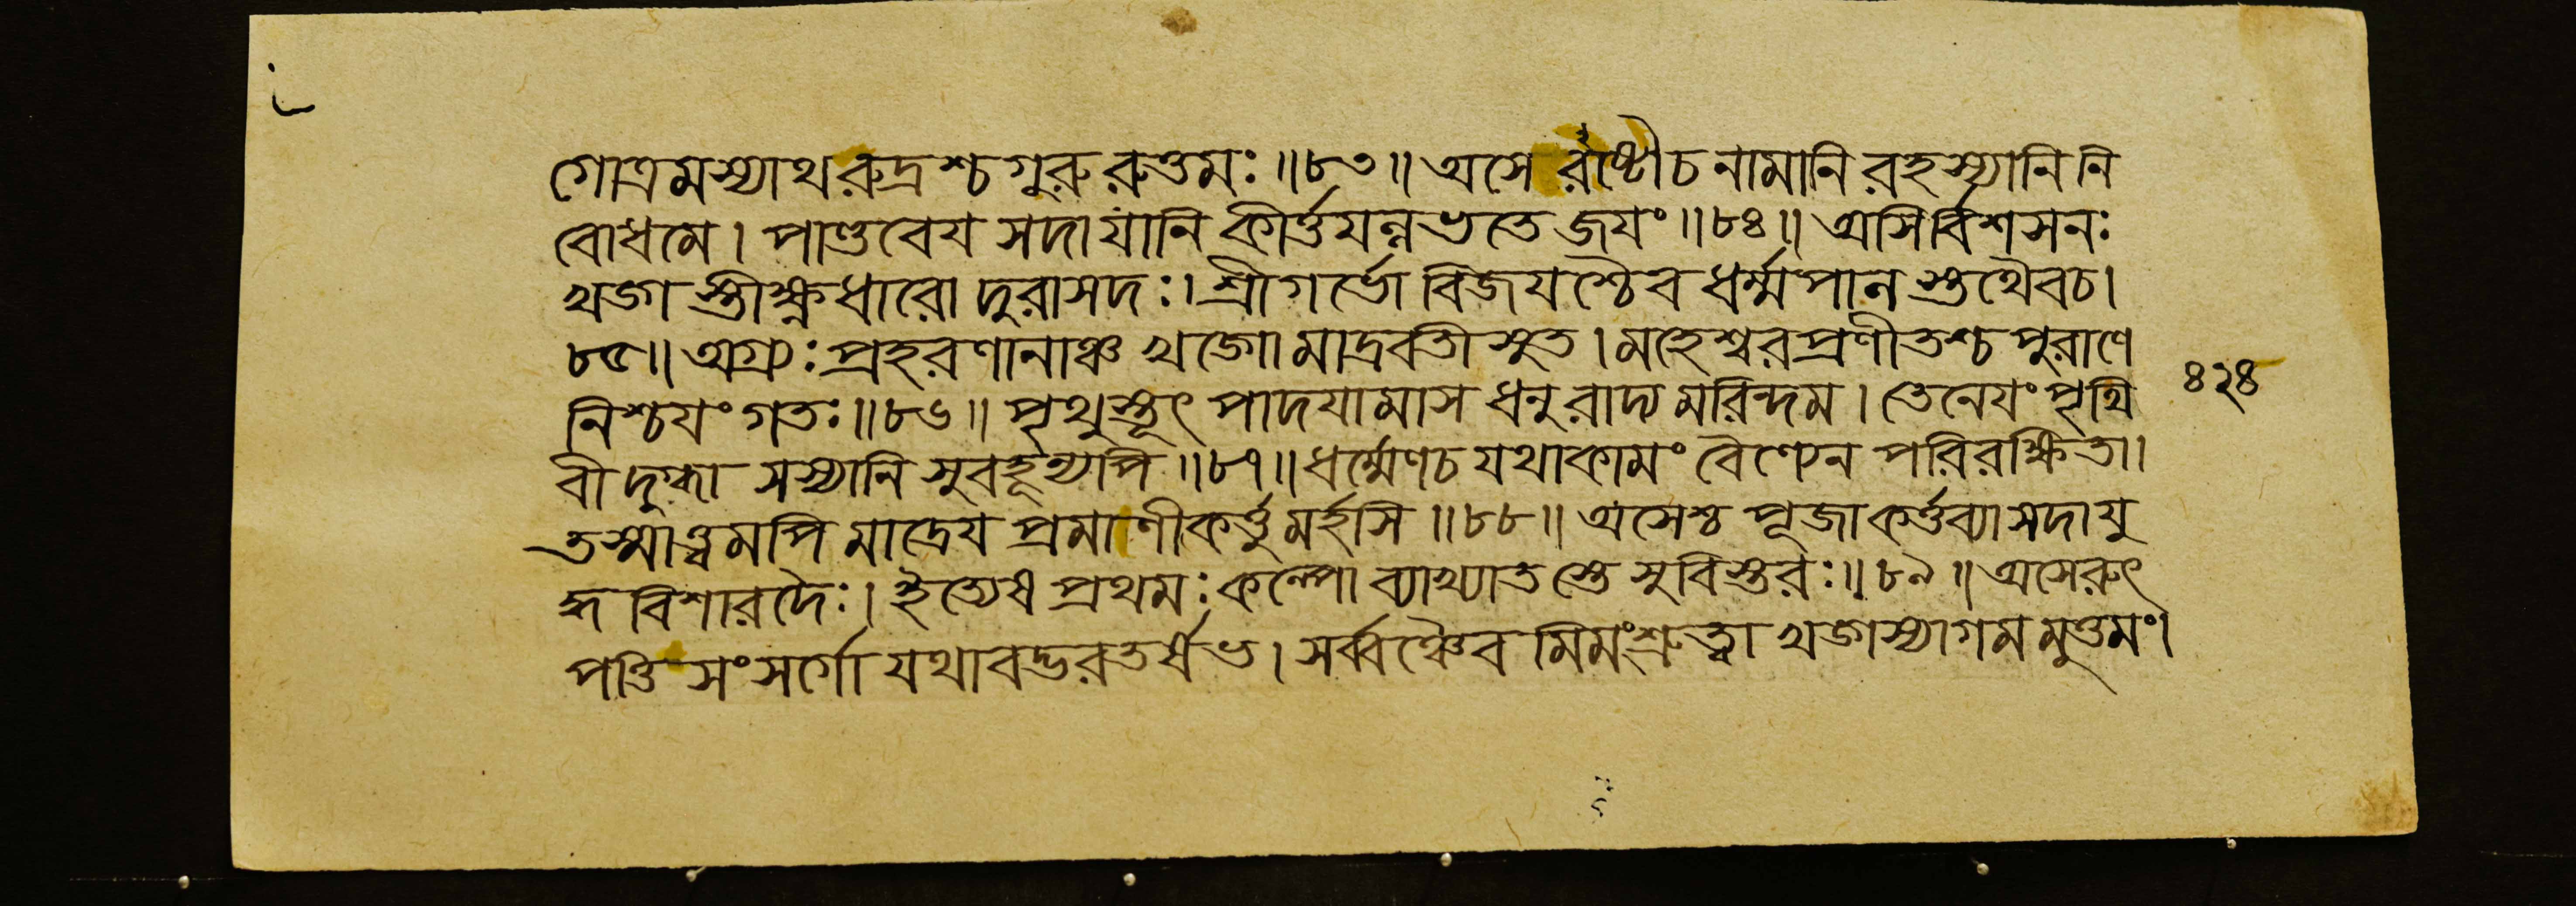 গোত্রমস্যাথরুদ্রশ্চগুরুরুত্তমঃ॥৮৩॥অসেরষ্টৌচনামানিরহস্যানিনি
বোধমে। পাণ্ডবেয সদাযানি কীর্ত্তযন্নভতে জযং॥৮৪॥অসির্বিশসনঃ
খড়্গস্তীক্ষ্ণধারো দুরাসদঃ।শ্রীগর্ভো বিজযশ্চৈব ধর্ম্মপালস্তুথৈবচ।
৮৫॥অগ্র্যঃপ্রহরণানাঞ্চ খড়্গো মাদ্রবতীসুত।মহেশ্বরপ্রণীতশ্চ পুরাণে
নিশ্চযংগতঃ॥৮৬॥ পৃথুস্তূৎ পাদযামাস ধনুরাদ্যমরিন্দম। তেনেযং পৃথি
বী দুগ্ধা সস্যানি সুবহূন্যপি॥৮৭॥ধর্ম্মেণচ যথাকামং বৈণ্যেন পরিরক্ষিতা।
তস্মাত্ত্বমপি মাদ্রেয প্রমাণীকর্ত্তুমর্হসি॥৮৮॥ অসেশ্চ পূজাকর্ত্তব্যা সদাযু
দ্ধবিশারদৈঃ। ইত্যেষ প্রথমঃ কল্পো ব্যাখ্যাতস্তে সুবিস্তরঃ॥৮৯॥ অসেরুৎ
পত্তি সংসর্গো যথাবদ্ভরতর্ষভ। সর্ব্বথৈব মিমংশ্রুত্বা খড়্গস্যাগমমুত্তমং।
৪২৪